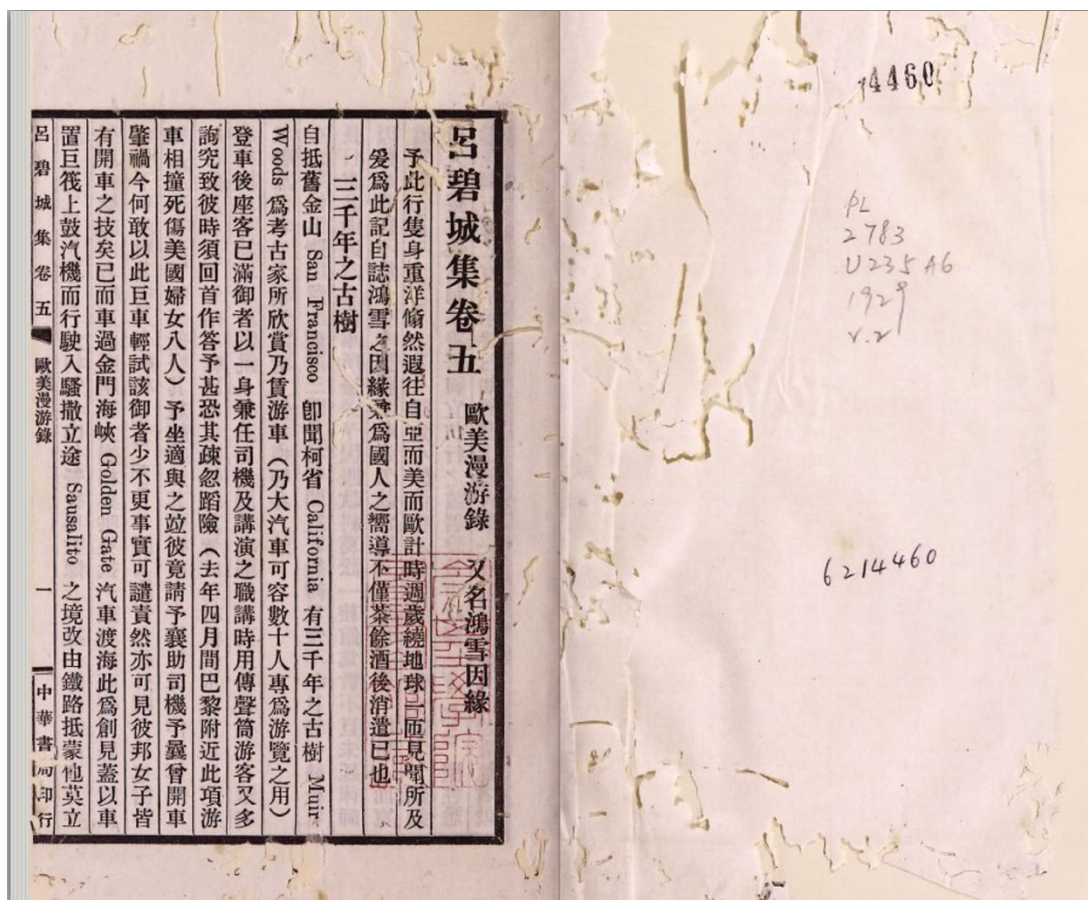 4460
PL
2783
U235 A6
1929
v.2
6214460
呂碧城集卷五 歐美漫游錄 又名鴻雪因緣
予此行隻身重洋翛然遐往自亞而美而歐計時週歲繞地球一匝見聞所及
爰爲此記自誌鴻雪之因緣兼爲國人之嚮導不僅茶餘酒後消遣已也
三千年之古樹
自抵舊金山 San Francisco 卽聞柯省 California 有三千年之古樹 Muir
Woods 爲考古家所欣賞乃賃游車（乃大汽車可容數十人專爲游覽之用）
登車後座客已滿御者以一身兼任司機及講演之職講時用傳聲筒游客又多
詢究致彼時須回首作答予甚恐其疎忽蹈險（去年四月間巴黎附近此項游
車相撞死傷美國婦女八人）予坐適與之竝彼竟請予襄助司機予曩曾開車
肇禍今何敢以此巨車輕試該御者少不更事實可譴責然亦可見彼邦女子皆
有開車之技矣已而車過金門海峽 Golden Gate 汽車渡海此爲創見蓋以車
置巨筏上鼓汽機而行駛入騷撒立途 Sausalito 之境改由鐵路抵蒙他莫立
呂碧城集卷五 歐美漫游錄 一 中華書局印行